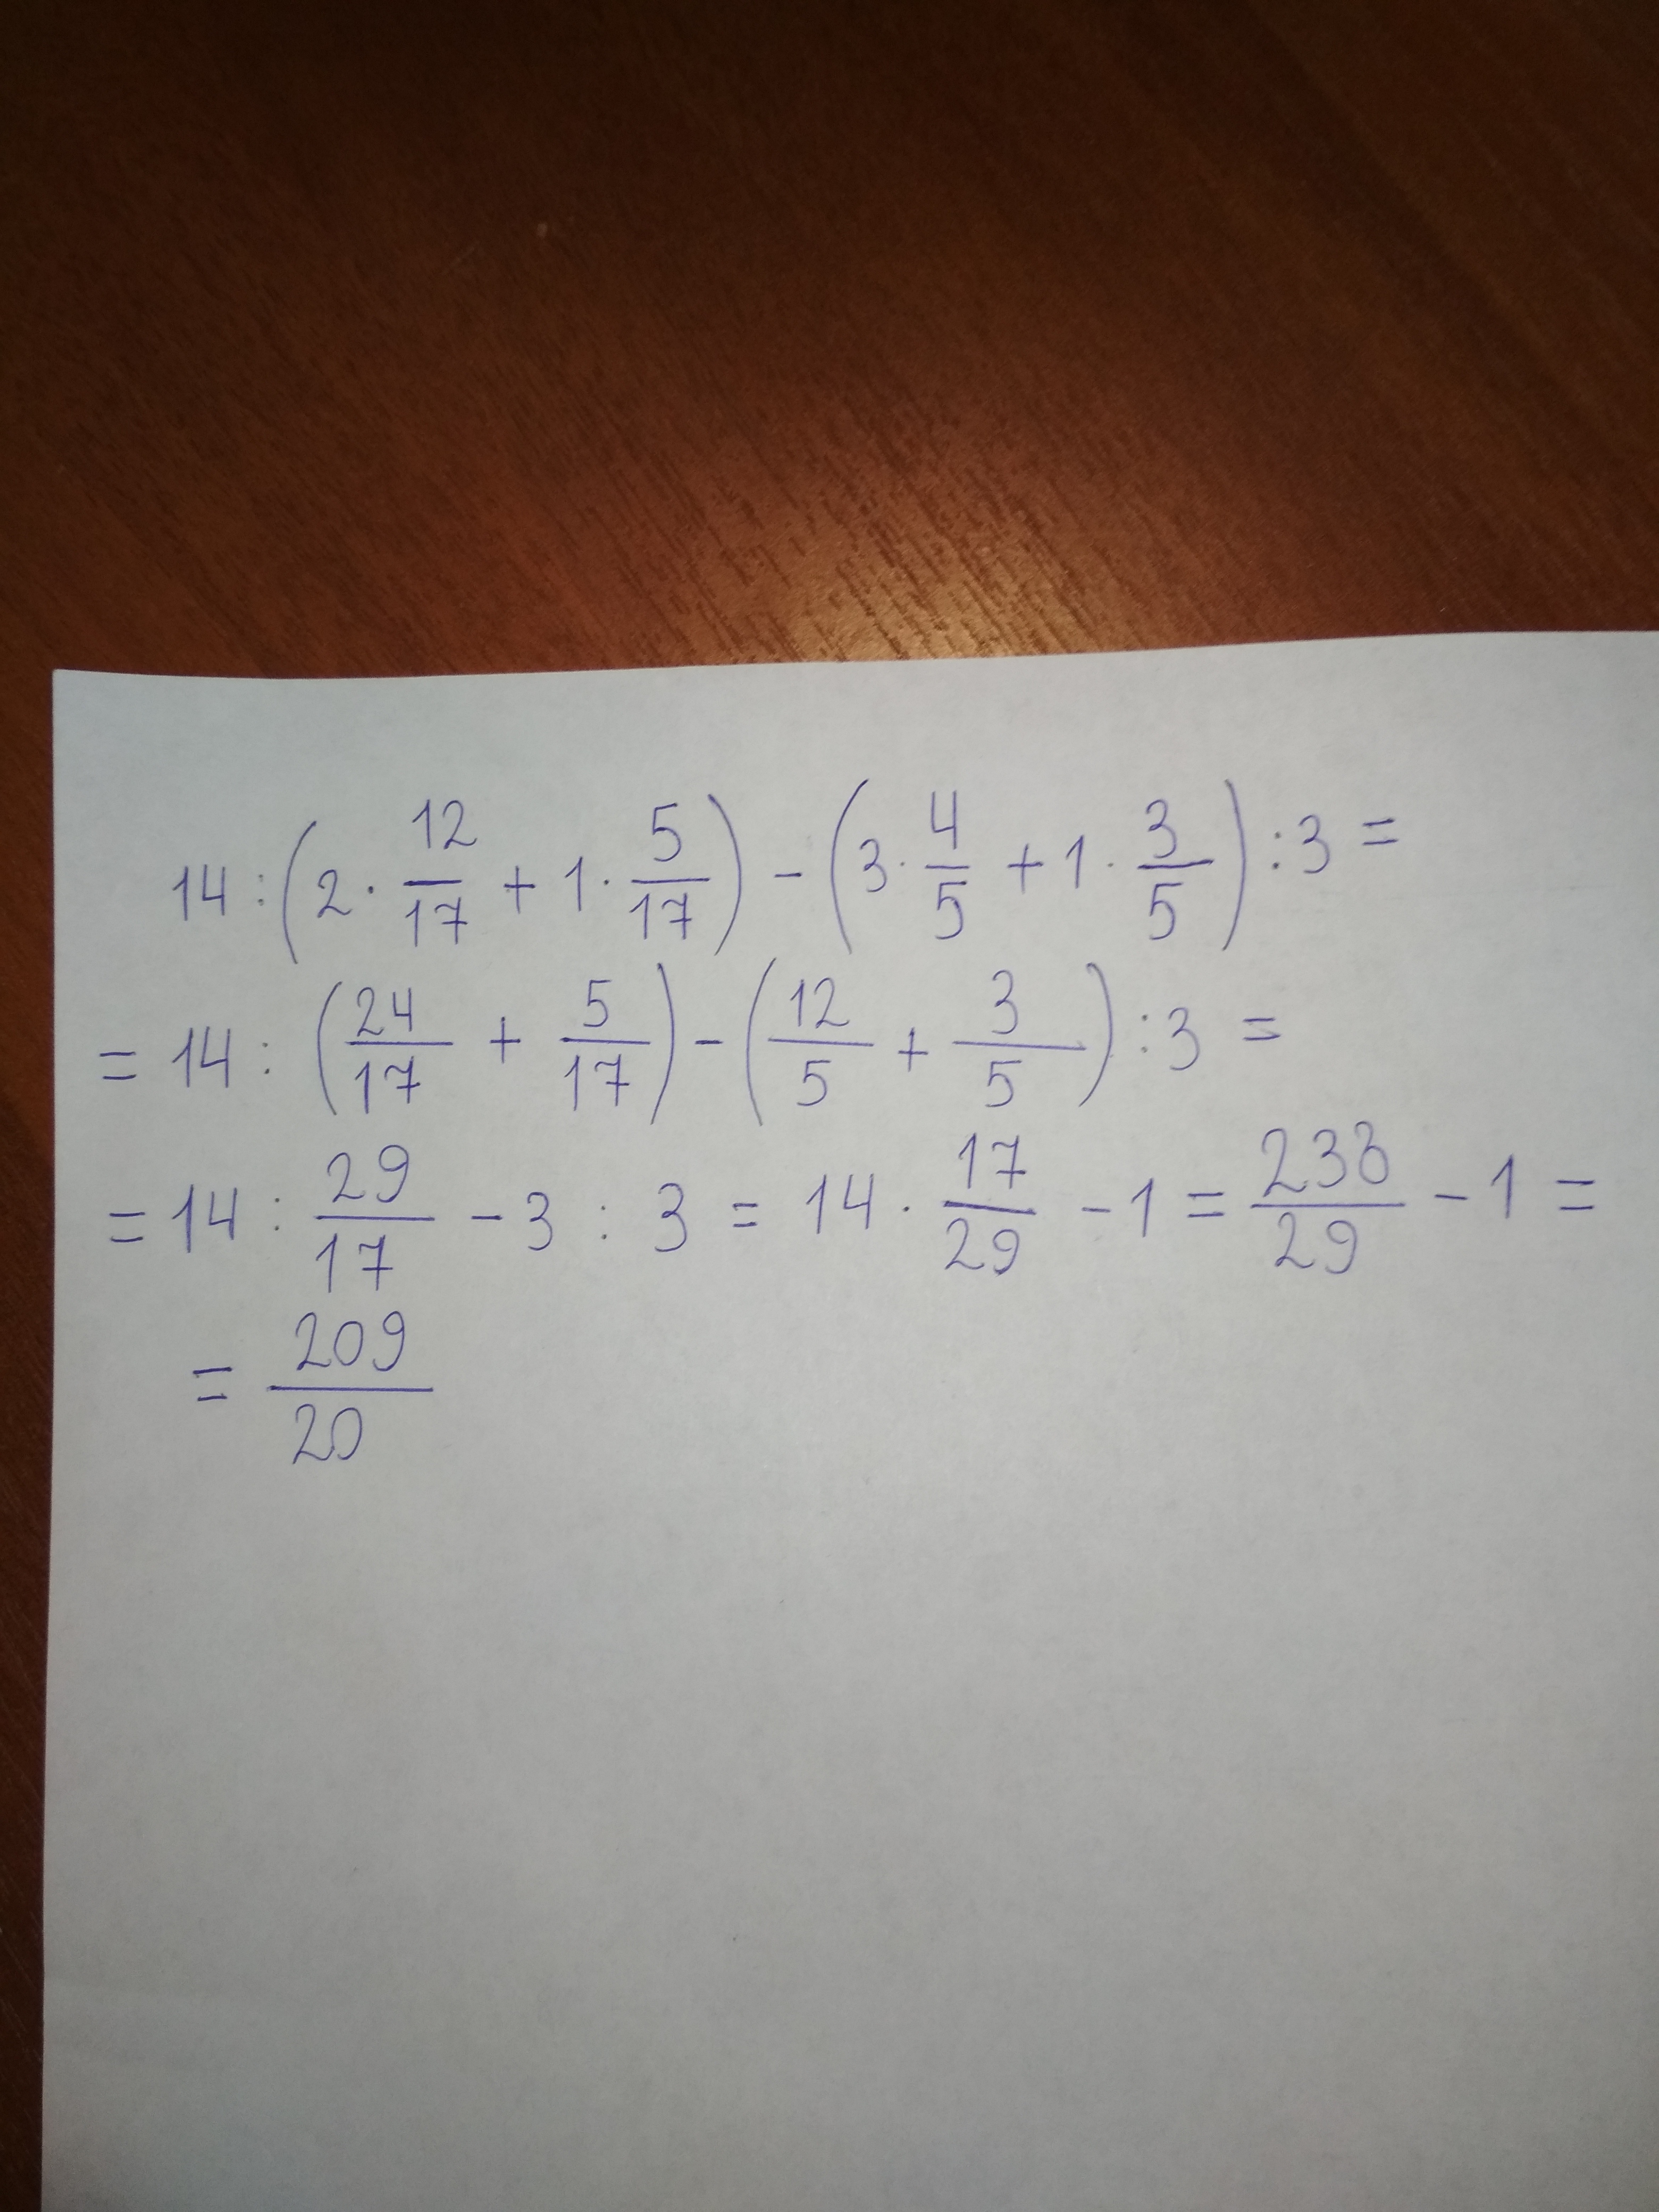 14 : (2 · 12/17 + 1 · 5/17) - (3 · 4/5 + 1 · 3/5) : 3 =
= 14 : (24/17 + 5/17) - (12/5 + 3/5) : 3 =
= 14 : 29/17 - 3 : 3 = 14 · 17/29 - 1 = 238/29 - 1 =
= 209/20